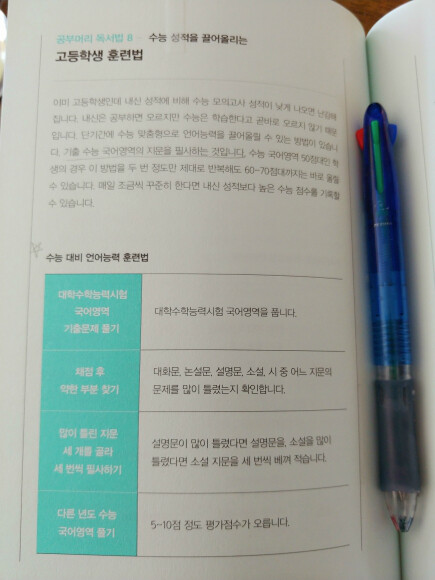 공부머리 독서법 8 — 수능 성적을 끌어올리는
고등학생 훈련법
이미 고등학생인데 내신 성적에 비해 수능 모의고사 성적이 낮게 나오면 난감해
집니다. 내신은 공부하면 오르지만 수능은 학습한다고 곧바로 오르지 않기 때문
입니다. 단기간에 수능 맞춤형으로 언어능력을 끌어올릴 수 있는 방법이 있습니
다. 기출 수능 국어영역의 지문을 필사하는 것입니다. 수능 국어영역 50점대인 학
생의 경우 이 방법을 두 번 정도만 제대로 반복해도 60~70점대까지는 바로 올릴
수 있습니다. 매일 조금씩 꾸준히 한다면 내신 성적보다 높은 수능 점수를 기록할
수 있습니다.
수능 대비 언어능력 훈련법
대학수학능력시험
국어영역
기출문제 풀기
대학수학능력시험 국어영역을 풉니다.
채점 후
약한 부분 찾기
대화문, 논설문, 설명문, 소설, 시 중 어느 지문의
문제를 많이 틀렸는지 확인합니다.
많이 틀린 지문
세 개를 골라
세 번씩 필사하기
설명문이 많이 틀렸다면 설명문을, 소설을 많이
틀렸다면 소설 지문을 세 번씩 베껴 적습니다.
다른 년도 수능
국어영역 풀기
5~10점 정도 평가점수가 오릅니다.